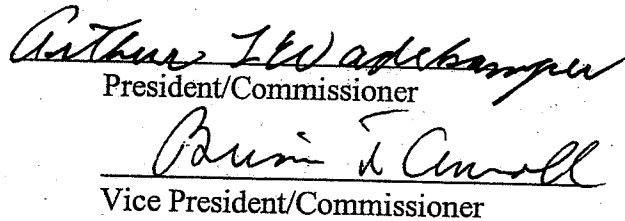 Arthur L Wadekamper
President/Commissioner
Brian T Carroll
Vice President/Commissioner